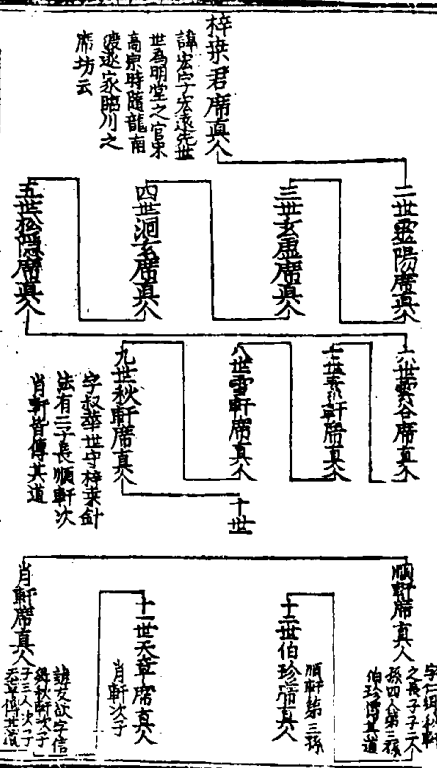 梓桑君席真人
諱宏字宏遠先世
世為明堂之官宋
高宗時隨龍南
渡遂家臨川之
席坊云
二世靈陽席真人
三世玄虛席真人
四世洞玄席真人
五世松隱席真人
六世雲谷席真人
七世素軒席真人
八世雪軒席真人
九世秋軒席真人
字叔華世守梓桑針
法有二子長順軒次
肖軒皆傳其道
十世
順軒席真人
之長子子二人
孫四人第三孫
伯珍傳其道
十二世伯珍席真人
順軒第三孫
十一世天章席真人
肖軒次子
肖軒席真人
秋軒次子
子三人次子
天章傳其道